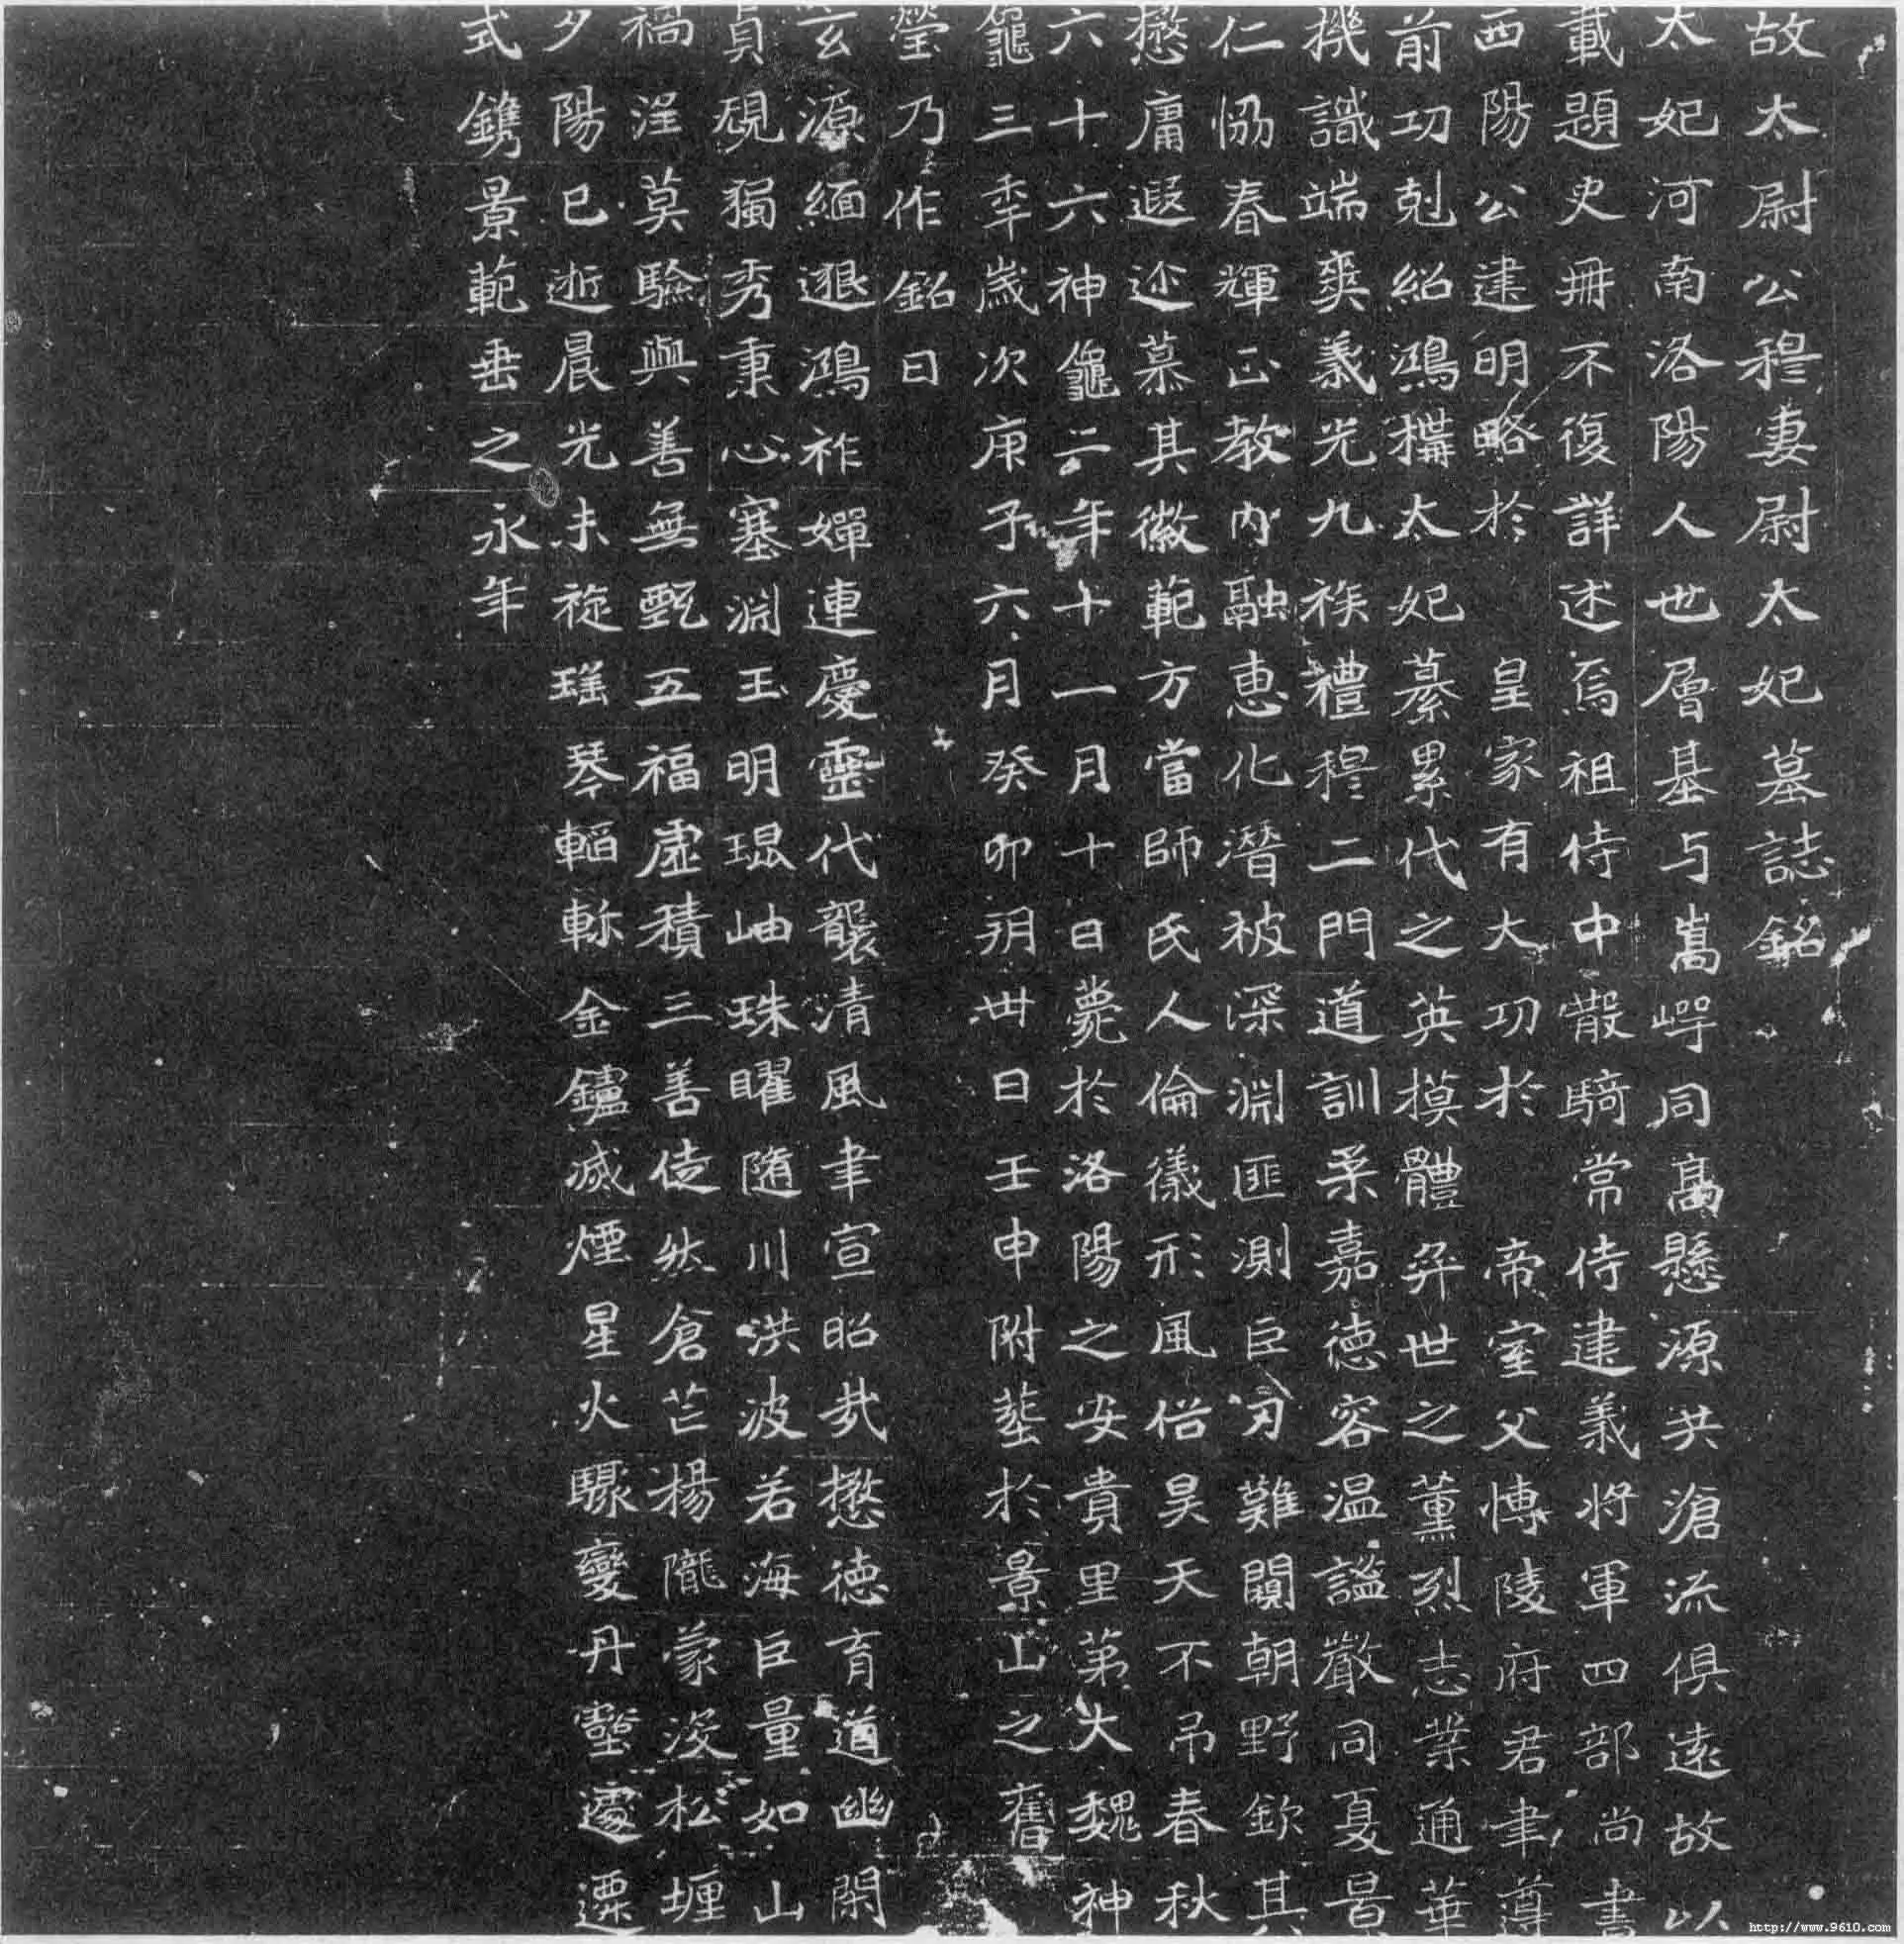 故太尉公穆妻尉太妃墓誌銘
太妃河南洛陽人也層基与嵩崿同高懸源共滄流俱遠故以
載題史冊不復詳述焉祖侍中散騎常侍建義将軍四部尚書
西陽公建明略於皇家有大功於帝室父博陵府君聿遵
前功剋紹鴻構太妃綦累代之英摸體弈世之薰烈志業通華
機識端奭義光九族禮穆二門道訓柔嘉德容温謐嚴同夏晷
仁恊春輝正教內融惠化潜被深淵匪測巨仞難闚朝野欽其
懋庸遐迩慕其徽範方當師氏人倫儀形風俗昊天不吊春秋
六十六神龜二年十一月十日薨於洛陽之安貴里第大魏神
龜三秊歲次庚子六月癸卯朔卅日壬申附塟於景山之舊
塋乃作銘曰
玄源緬邈鴻祚嬋連慶靈代襲清風聿宣昭哉懋德育道幽閑
貞硯獨秀秉心塞淵玉明琨岫珠曜隨川洪波若海巨量如山
禍淫莫驗與善無甄五福虛積三善徒然倉芒楊隴蒙淩松堙
夕陽已逝晨光未旋瑤琴韜軫金鑪滅煙星火驟變丹壑遽遷
式鐫景範垂之永年
http://www.9610.com